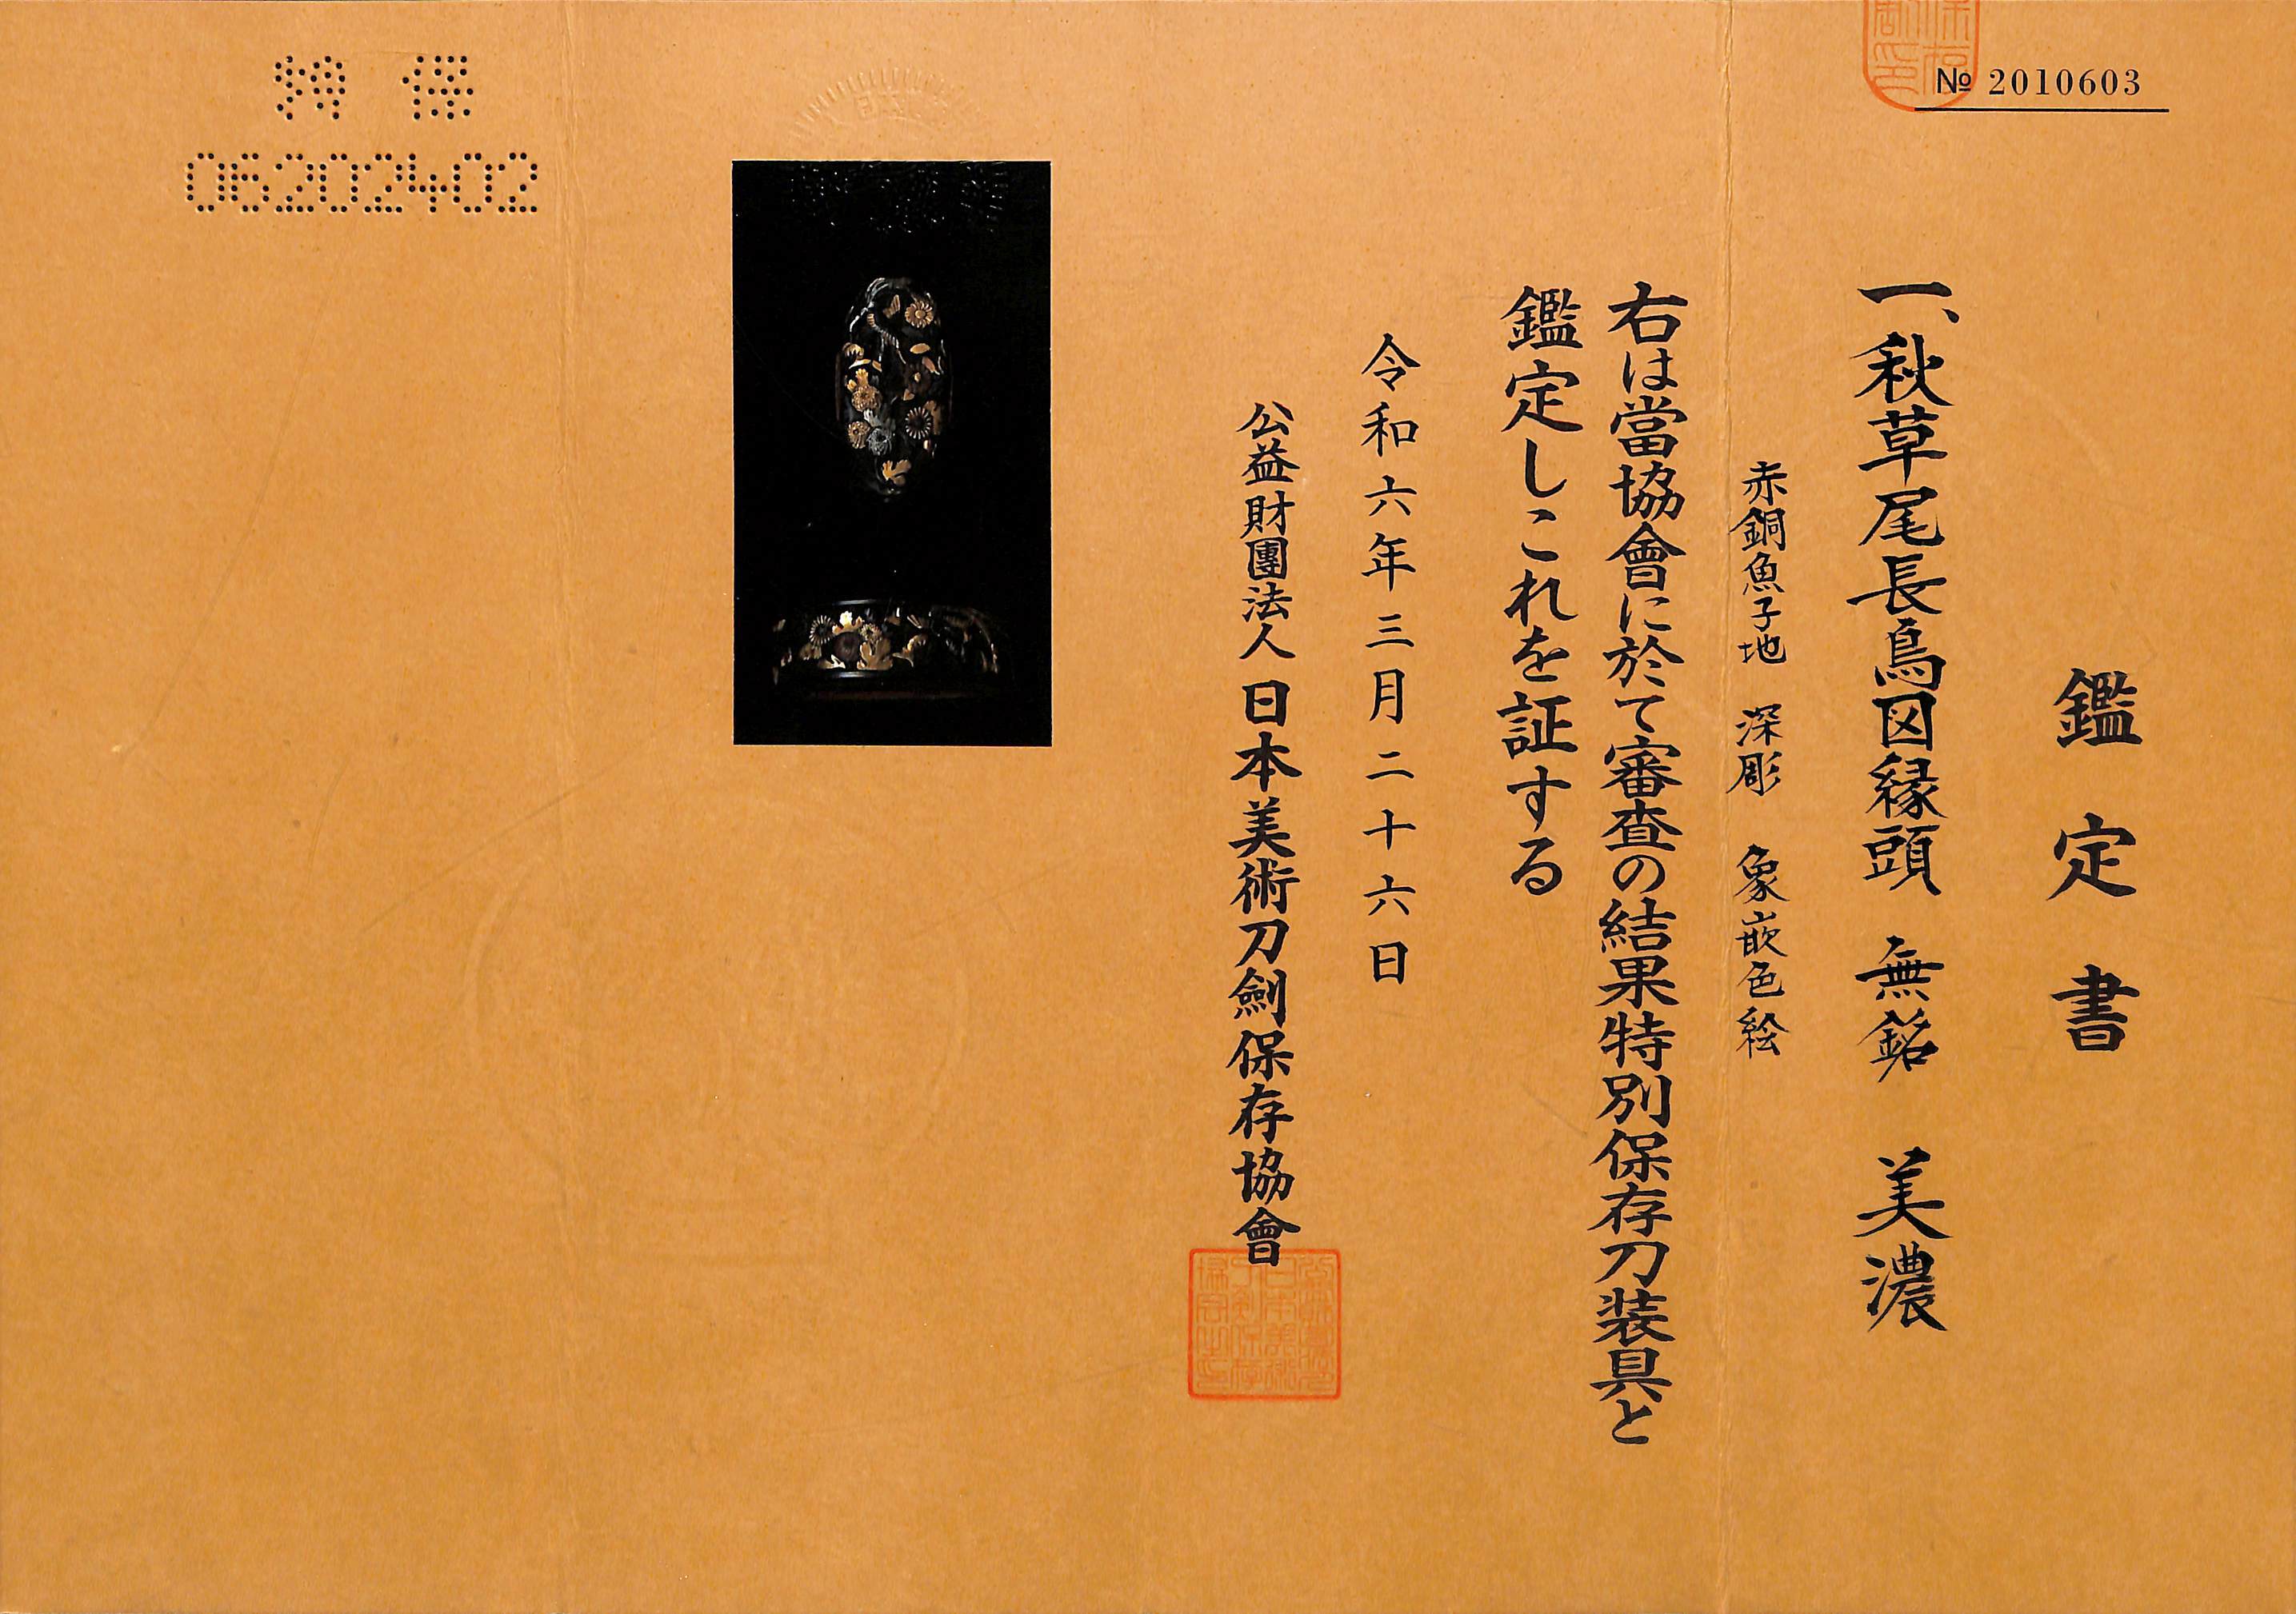 № 2010603
鑑定書
一、秋草尾長鳥図縁頭 無銘 美濃
赤銅魚子地 深彫 象嵌色絵
右は當協會に於て審査の結果特別保存刀装具と
鑑定しこれを証する
令和六年三月二十六日
公益財團法人 日本美術刀劍保存協會
特保
06202402